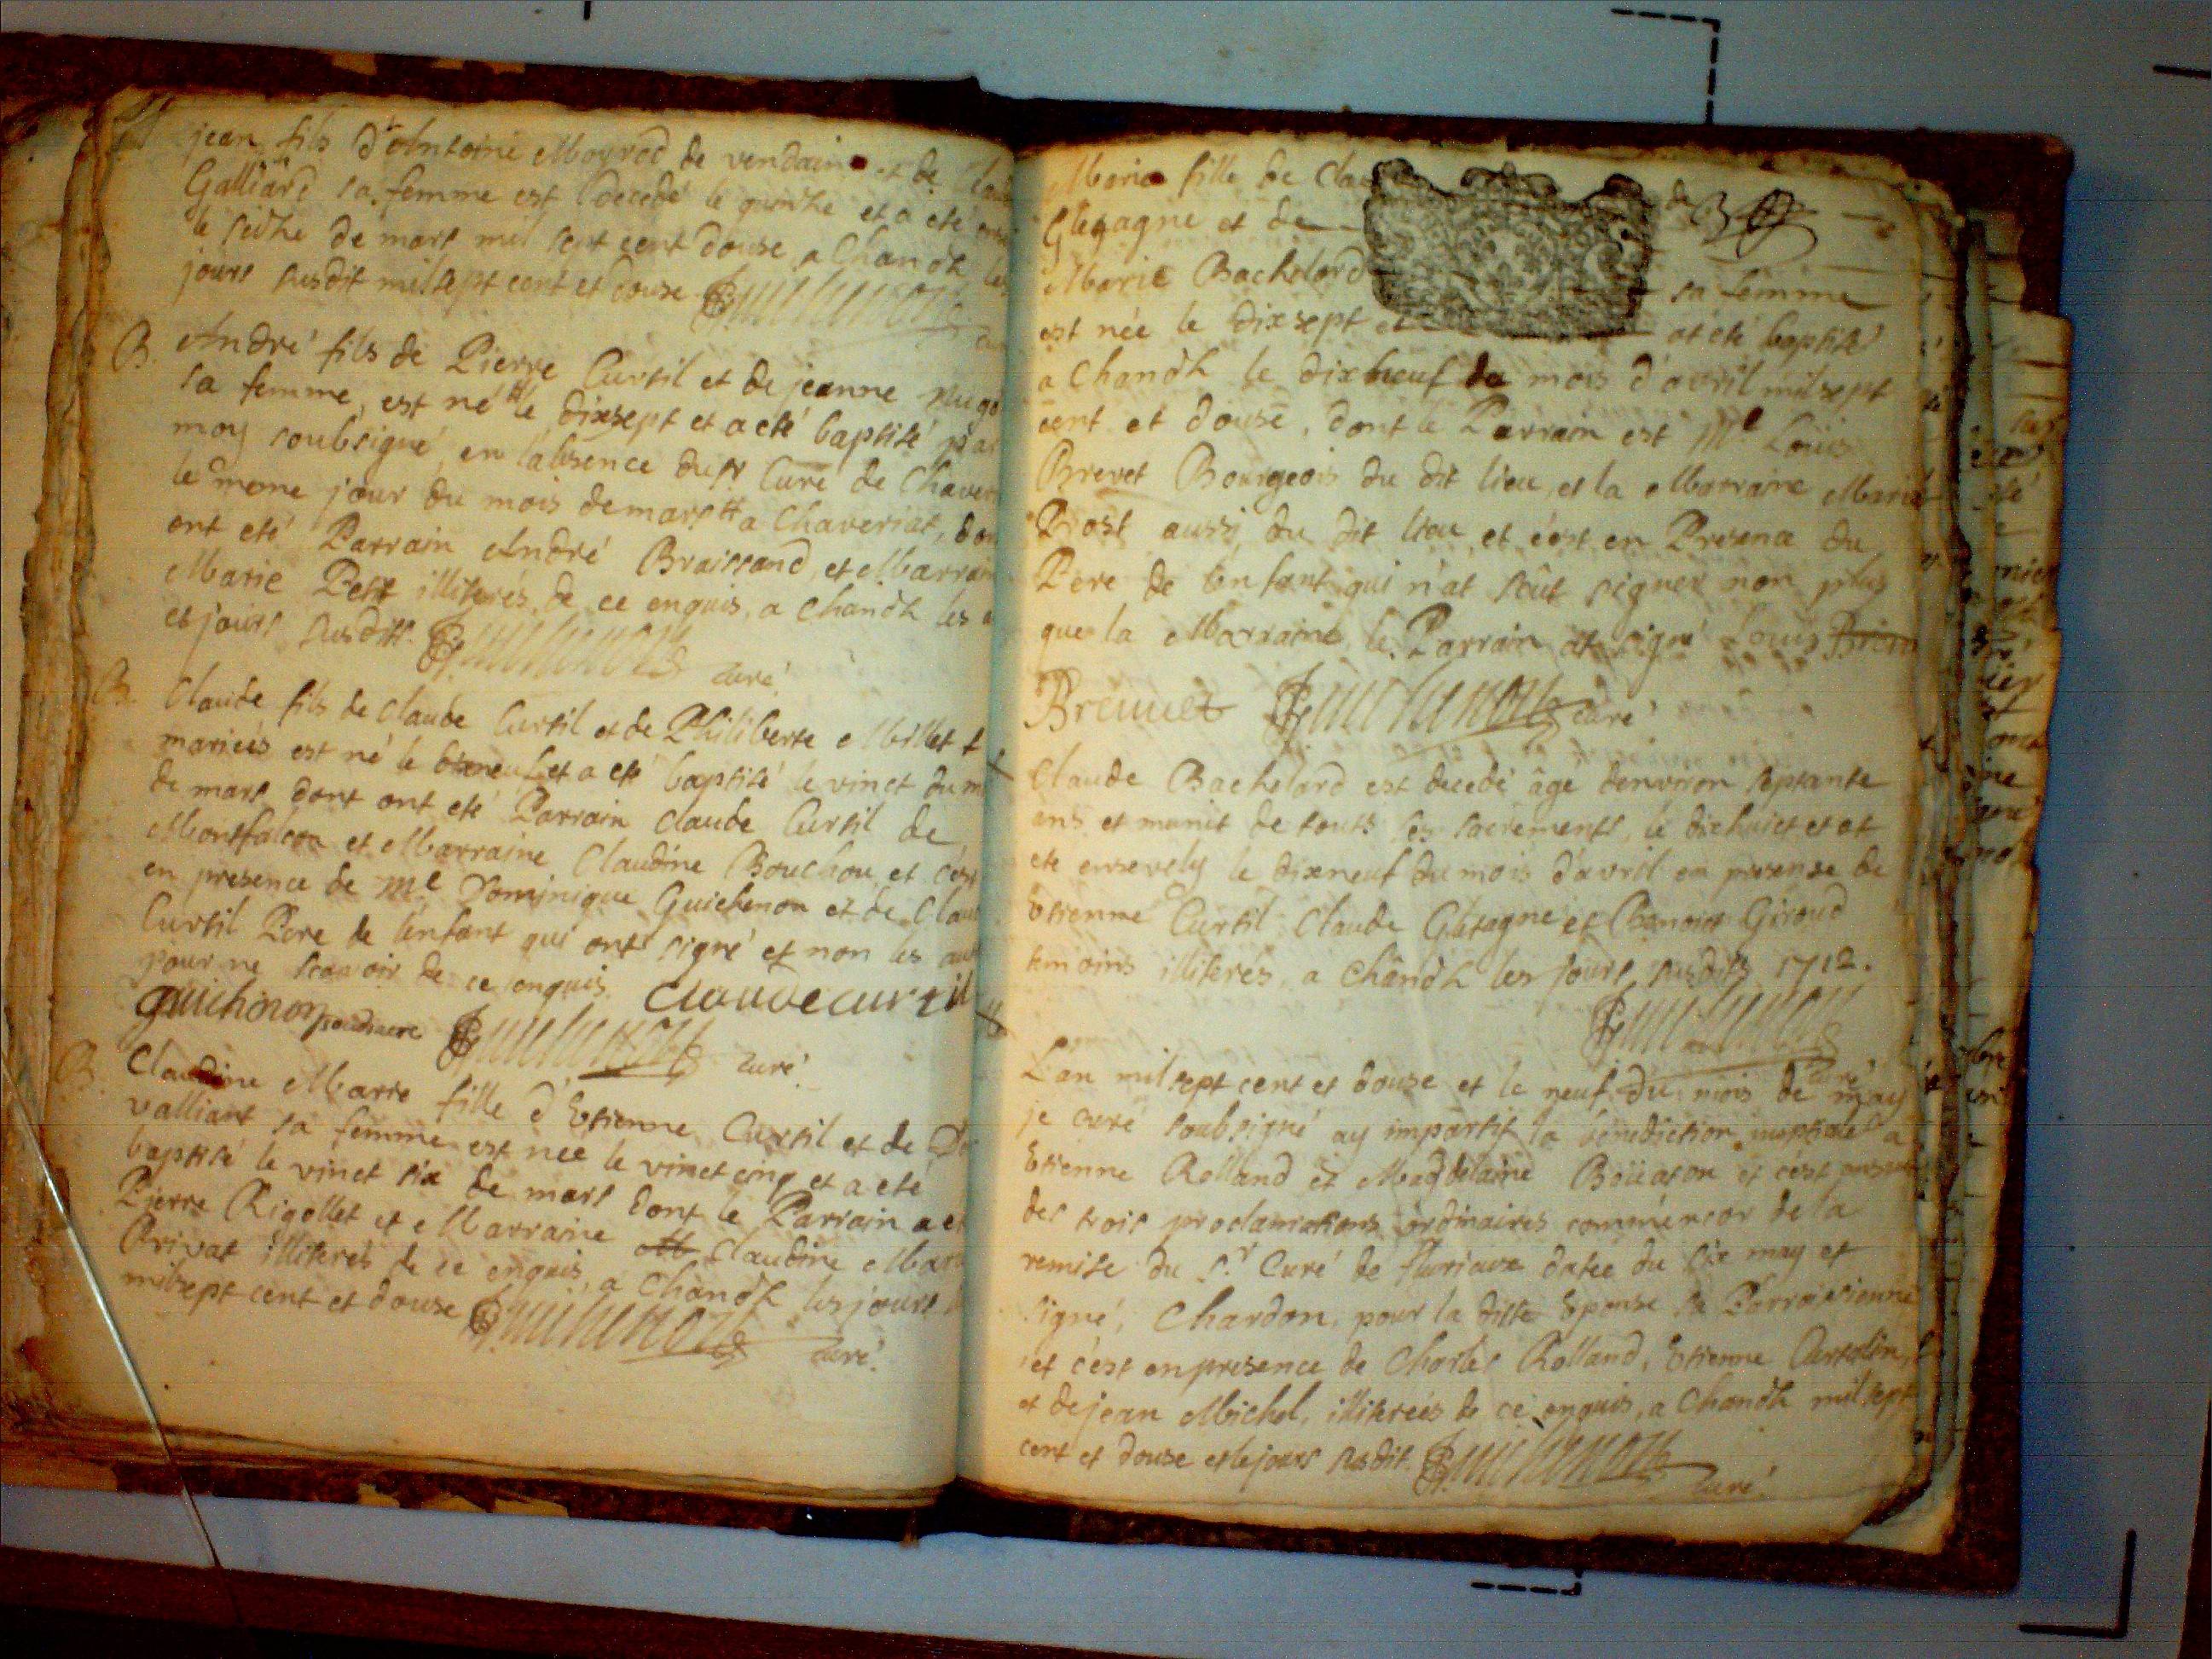 jean fils d'Antoine Moyrod de vendain et de
Galliard sa femme est decedé le quinze et a eté
le seize de mars mil sept cent douse a Chandh les
jours susdit mil sept cent et douse
B. André fils de Pierre Curtil et de jeanne
sa femme, est né le dixsept et a eté baptisé par
moy soubsigné, en l'absence du Sr Curé de
le meme jour du mois de mars a Chaveriat,
ont eté Parrain André Braissand, et Marraine
Marie Petit illiterés, de ce enquis, a Chandh les
et jours susdits. curé.
B. Claude fils de Claude Curtil et de Philiberte Millet
mariées est né le dixneuf et a eté baptisé le vinct du
de mars dont ont eté Parrain Claude Curtil de
Montfalcon et Marraine Claudine Bouchou, et c'est
en presence de Me Dominique Guichenon et de
Curtil Pere de l'enfant qui ont signé et non les
pour ne scavoir de ce enquis. Claude curtil
guichenon curé.
B. Claudine Marie fille d'Etienne Curtil et de
valliant sa femme est née le vinct cinq et a eté
baptisé le vinct six de mars dont le Parrain a
Pierre Rigollet et Marraine Claudine
Privat illiterés de ce enquis, a Chandh les jours
mil sept cent et douse curé.
Maria fille de
Gletagne et de
Marie Bachelard sa femme
est née le dixsept et at eté baptisé
a Chandh le dixneuf du mois d'avril mil sept
cent et douse, dont le Parrain est Me Loüis
Brevet Bourgeois du dit lieu, et la Marraine Marie
Prost aussi du dit lieu, et c'est en Presence du
Pere de l'enfant qui n'at sçût signer non plus
que la Marraine, le Parrain at signé Louis
Breuuet curé
Claude Bachelard est decedé âgé denviron septante
ans et munit de touts ses sacrements, le dixhuict et at
eté ensevely le dixneuf du mois d'avril en presense de
Etienne Curtil Claude Gletagne et Benoist Giroud
temoins illiterés, a Chândh les jours susdits 1712.
curé
L'an mil sept cent et douse et le neuf du mois de may
je curé soubsigné ay impartit la bénediction nuptiale a
Etienne Rolland et Magdelaine Boüaton et c'est
des trois proclamations ordinaires comme de la
remise du Sr Curé de datee du six may et
signé, Chardon, pour la ditte Epouse sa Parroissienne
et c'est en presence de Charles Rolland, Etienne
et de jean Michel, illiterées de ce enquis, a Chandh mil sept
cent et douse et le jours susdit. curé.